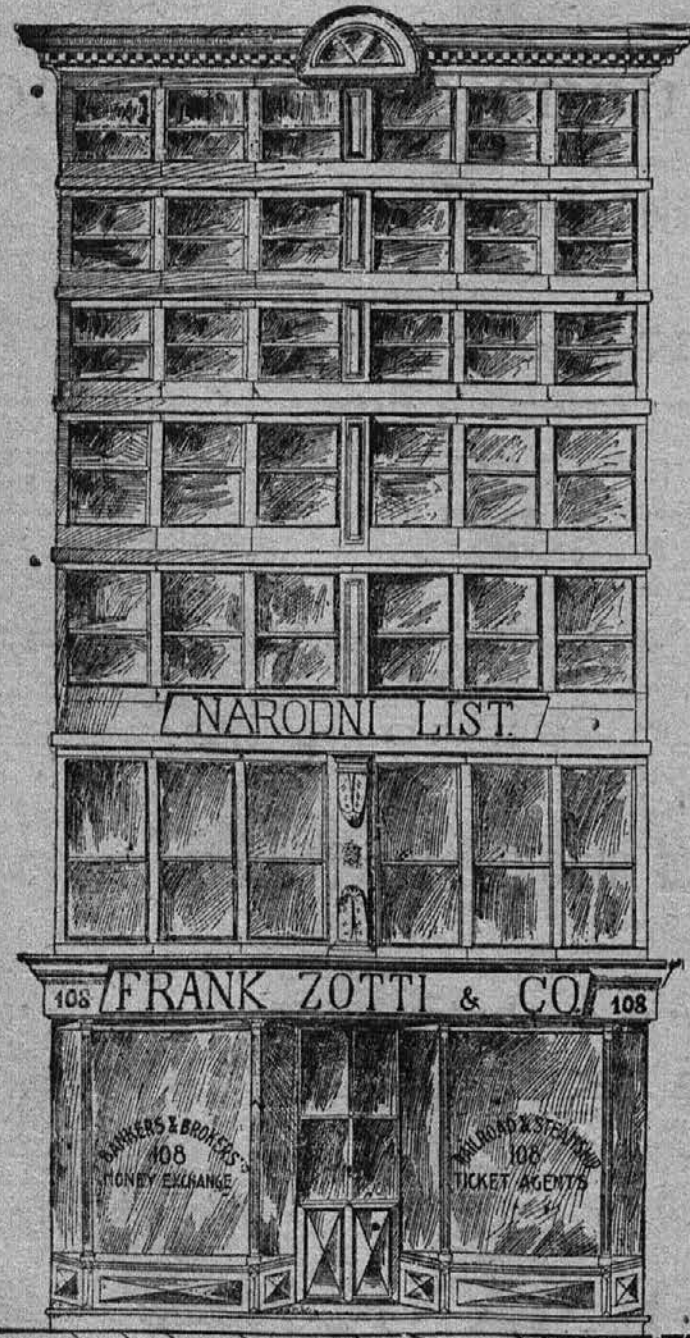 NARODNI LIST.
108 FRANK ZOTTI & CO. 108
BANKERS & BROKERS
108
MONEY EXCHANGE
RAILROAD & STEAMSHIP
108
TICKET AGENTS